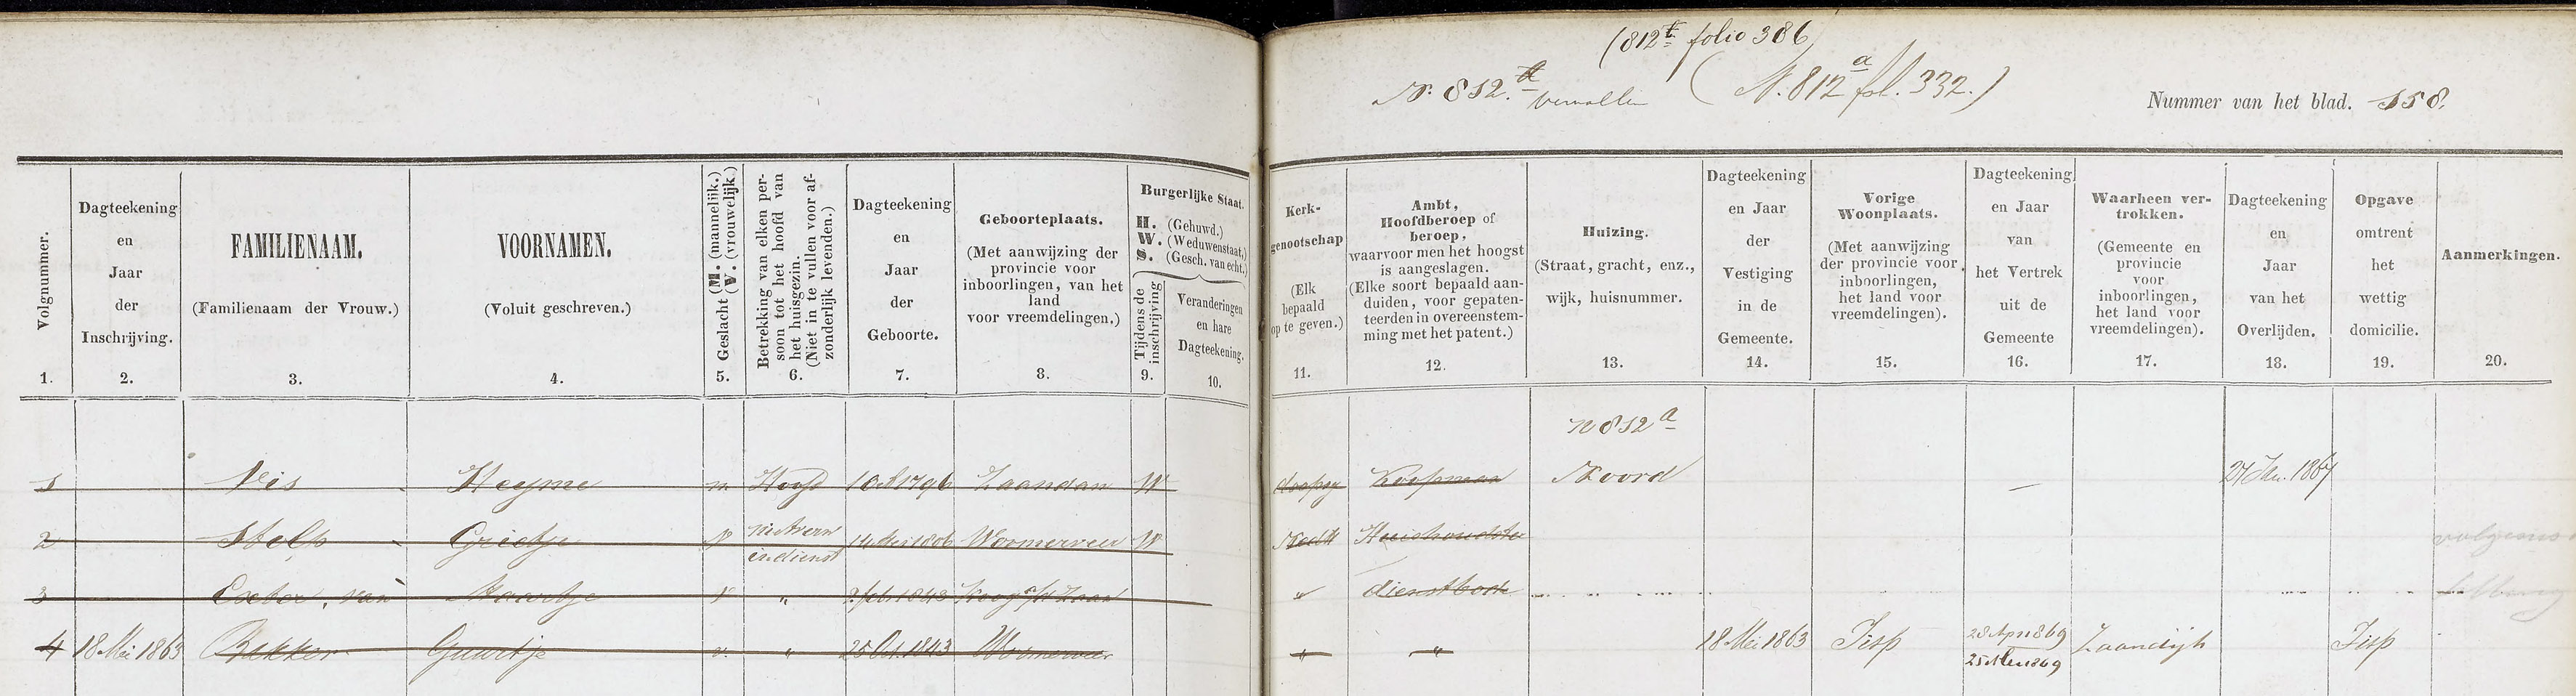 (812 folio 386)
N. 812.a vervallen (N. 812a fol. 332.)
Nummer van het blad. 158.
Volgnummer.
1.
Dagteekening
en
Jaar
der
Inschrijving.
2.
FAMILIENAAM.
(Familienaam der Vrouw.)
3.
VOORNAMEN.
(Voluit geschreven.)
4.
Geslacht (M. (mannelijk.)
(V. (vrouwelijk.)
5.
Betrekking van elken per-
soon tot het hoofd van
het huisgezin.
(Niet in te vullen voor af-
zonderlijk levenden.)
6.
Dagteekening
en
Jaar
der
Geboorte.
7.
Geboorteplaats.
(Met aanwijzing der
provincie voor
inboorlingen, van het
land
voor vreemdelingen.)
8.
Burgerlijke Staat.
H. (Gehuwd.)
W. (Weduwenstaat.)
S. (Gesch. van echt.)
Tijdens de
inschrijving
9.
Veranderingen
en hare
Dagteekening.
10.
Kerk-
genootschap
(Elk
bepaald
op te geven.)
11.
Ambt,
Hoofdberoep of
beroep,
waarvoor men het hoogst
is aangeslagen.
(Elke soort bepaald aan-
duiden, voor gepaten-
teerden in overeenstem-
ming met het patent.)
12.
Huizing.
(Straat, gracht, enz.,
wijk, huisnummer.
13.
Dagteekening
en Jaar
der
Vestiging
in de
Gemeente.
14.
Vorige
Woonplaats.
(Met aanwijzing
der provincie voor
inboorlingen,
het land voor
vreemdelingen).
15.
Dagteekening
en Jaar
van
het Vertrek
uit de
Gemeente
16.
Waarheen ver-
trokken.
(Gemeente en
provincie
voor
inboorlingen,
het land voor
vreemdelingen).
17.
Dagteekening
en
Jaar
van het
Overlijden.
18.
Opgave
omtrent
het
wettig
domicilie.
19.
Aanmerkingen.
20.
N 812 a
1 Vis Heyme m Hoofd 1 Oct 1796 Zaandam W doopsg Koopman Noord 1867
2 Stelp Grietje v in dienst 1806 Wormerveer W Huishoudster volgens
3 Exter, van Maartje v " 2 feb. 1843 Koog a/d Zaan " dienstbode
4 18 Mei 1863 Bakker Guurtje v. " 25 Oct. 1843 Wormerveer " " 18 Mei 1863 Jisp 28 Apr 1869 Zaandijk Jisp
25 1869